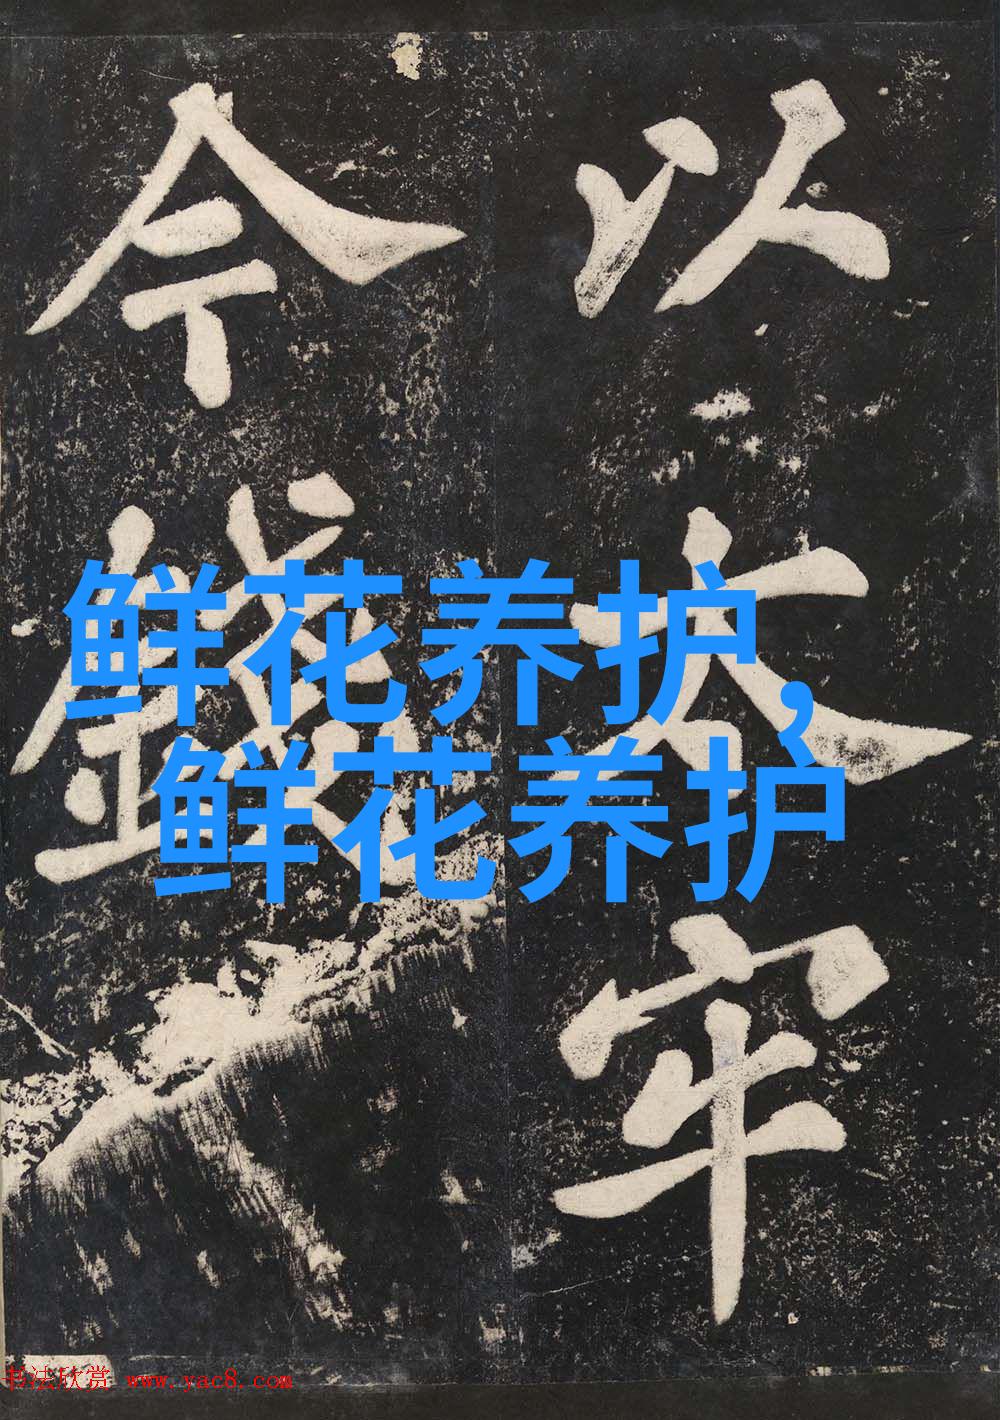 以太牢
今鐵
鲜花养护,
鲜花养护
书法欣赏 www.yac8.com